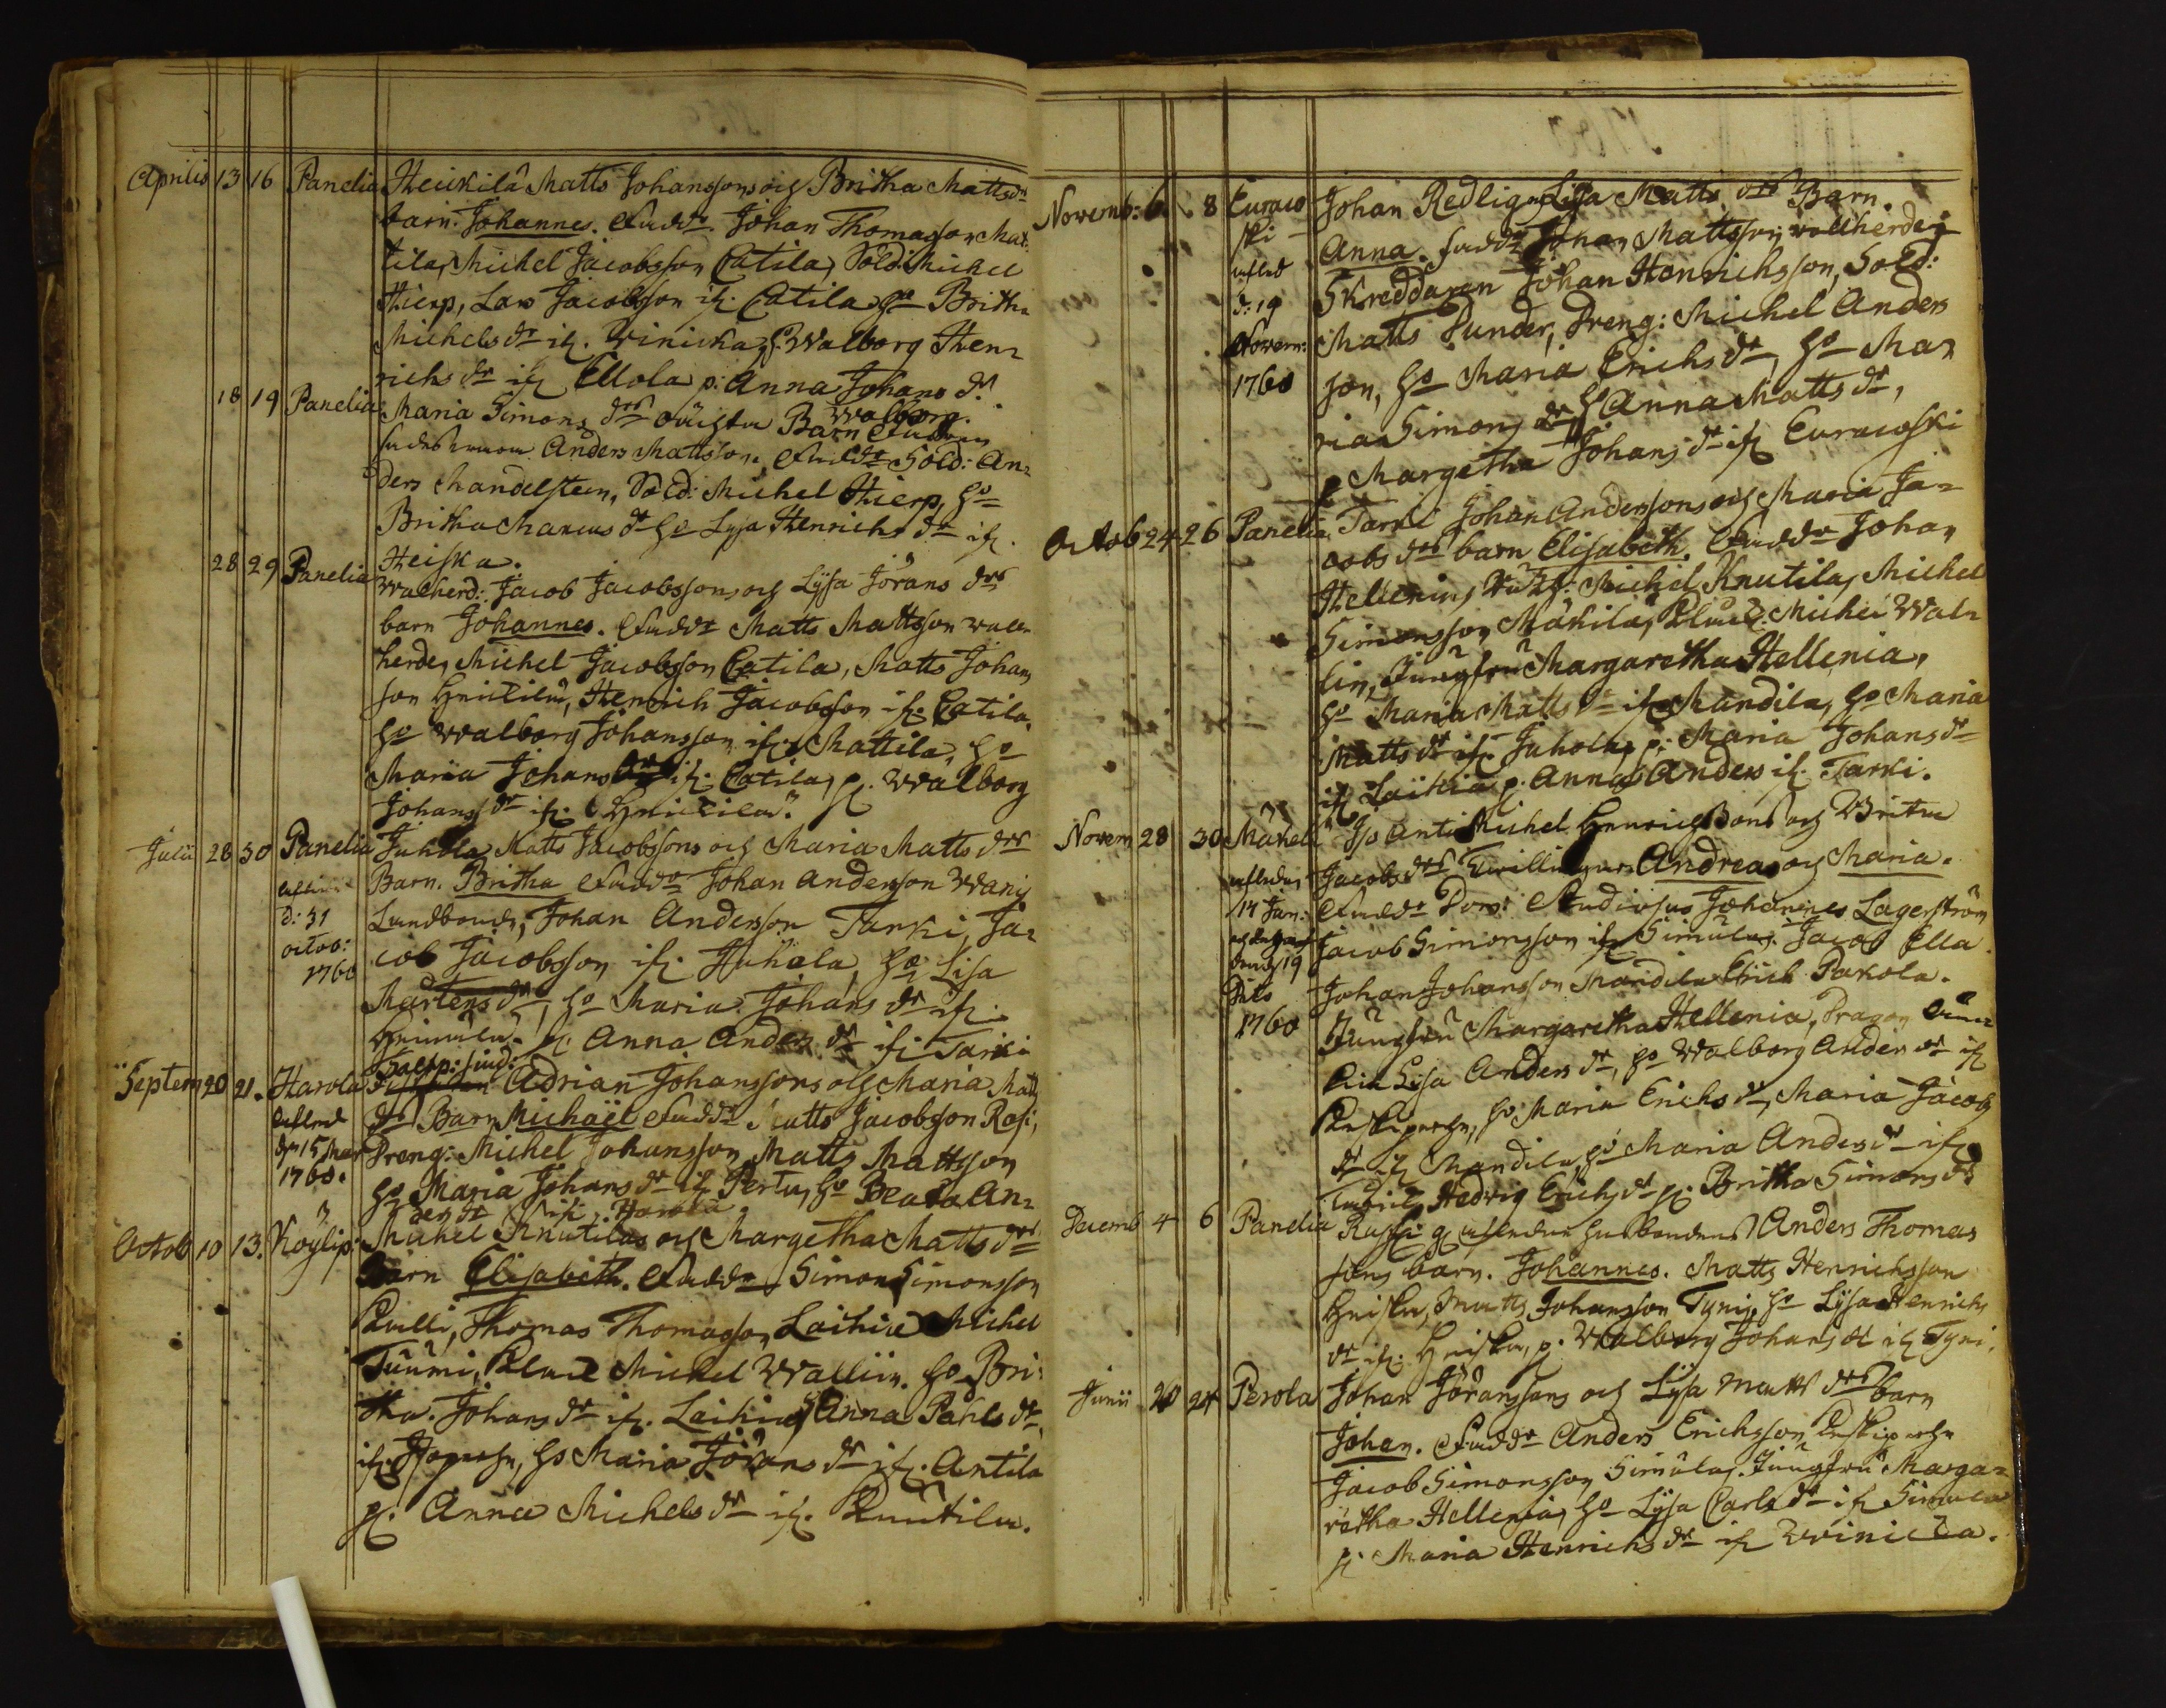 Aprilis 13 16 Panelia Heickilä Matts Johanssons och Britha Mattsdrs
barn. Johannes. Fadd. Johan Thomasson Mat-
tila, Michel Jacobsson Catila, Sold: Michel
Hierp, Lars Jacobsson if. Catila, ho Britha
Michelsdr if. Vinicka, ho Walborg Hen-
richsdr if Ellola p: Anna Johansdr
18 19 Panelia Maria Simonsdrs oächta Barn Walborg.
Anders Mattsson. Fadd Sold: An-
ders Mandelsteen, Sold: Michel Hierp, ho
Britha Marcusdr ho Lysa Henrichsdr if.
Heiska.
28 29 Panelia Wacherd: Jacob Jacobssons och Lysa Jöransdrs
barn Johannes. Faddr Matts Mattsson vall-
herde, Michel Jacobsson Catila, Matts Johans
son Heickilä, Henrich Jacobsson if. Catila.
ho Walborg Johansson if. Mattila, ho
Maria Johansdr if. Catila, p. Walborg
Johansdr if. Heickilä.
Julii 28 30 Panelia Juhola Matts Jacobssons och Maria Mattsdrs
Barn. Britha Faddr Johan Andersson Wanj
d: 31 Landbonde, Johan Andersson Tarki, Ja-
octob: cob Jacobsson if. Juhola, ho Lisa
1760 Mårtensdr, ho Maria Johansdr if.
p. Anna Andersdr if. Tarki
Septem 20 21. Harola Adrian Johanssons och Maria Matts
aflied drs Barn Michaël Faddr Matts Jacobsson Rasi,
d. 15 Mar Dreng: Michel Johansson, Matts Mattsson
1760. ho Maria Johansdr if. Pertu, ho Beata An-
dersdr if. Harola.
Octob 10 13. Köylip: Michel Knutilas och Margetha Mattsdrs
Barn Elisabeth. Faddr Simon Simonsson
Thomas Thomasson Laihia Michel
Tuumi, Michel Wallin. ho Bri-
tha. Johansdr if. Laihia, Anna Pahlsdr,
if. ho Maria Jöransdr if. Antila
p. Anna Michelsdr if. Knutila.
Novemb: 6. 8 Euraco Johan Redlig och Lisa Mattsdrs Barn.
ski Anna. Faddr Johan Mattsson vallherde,
aflied Skreddaren Johan Henrichsson, Sold:
d: 19 Matts Sunder, Dreng: Michel Anders
Novem: son, ho Maria Erichsdr, ho Ma-
1760 ria Simonsdr, ho Anna Mattsdr,
p Margetha Johansdr if Euracoski
Octob 24 26 Panelia Tarki Johan Anderssons och Maria Ja-
cobsdrs barn Elisabeth. Faddr Johan
Hellenius, Michel Knutila, Michel
Simonsson Mäkilä, Michel Wal-
lin, Jungfru Margaretha Hellenia,
ho Maria Mattsdr if Mandila, ho Maria
Mattsdr if. Juhola, p: Maria Johansdr
if Laihia p. Anna Anders if. Tarki.
Novem 28 30 Mäkelä Iso Antti Michel Henrichssons och Brita
Jacobsdrs Twillingar Andreas och Maria.
14 Jan: Faddr Studiosus Johannes Lagerström
Jacob Simonsson if Simula, Jacob Ella.
19 Johan Johansson Mandila Erich Pakola.
1760 Jungfru Margaretha Hellenia, Dragon
Lisa Andersdr, ho Walborg Andersdr if
ho Maria Erichsdr, Maria Jacobs
dr if Mandila, ho Maria Andersdr if
Hedvig Erichsdr p: Britha Simonsdr
Decemb 4 6 Panelia Anders Thomas
sons barn. Johannes. Matts Henrichsson
Heiska, Matts Johansson Tyni, ho Lysa Henrichs
dr if. Heiska, p. Walborg Johansdr if Tyni.
Junii 20 24 Perola Johan Jöranssons och Lysa Mattsdrs barn
Johan. Faddr Anders Erichsson
Jacob Simonsson Simula, Jungfru Marga-
retha Hellenia, ho Lysa Carlsdr if Simula
p. Maria Henrichsdr if Vinicka.